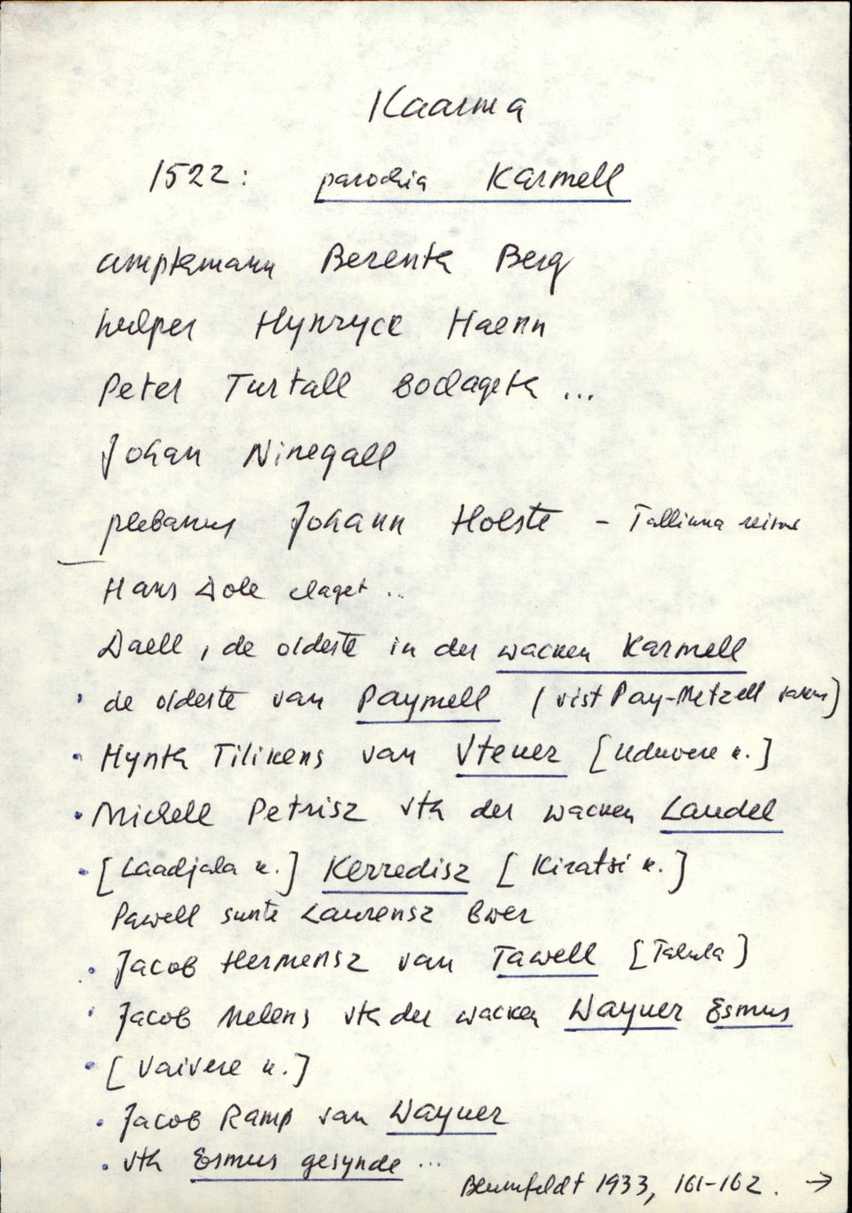 Kaarma
1522: parochia Karmell
amptzmann Berenth Berg
hulper Hynryck Haenn
Peter Turtall boclageth ...
Johan Ninegall
plebanus Johann Holste - Tallinna
Hans Dole claget ..
Daell, de oldeste in der wacken Karmell
• de oldeste van Paymell (vist Pay-Metzell
• Hynth Tilikens van Vteuer [Uduvere k.]
• Michell Petrisz vth der wacken Laudel
• [Laadjala k.] Kerredisz [Kiratsi k.]
Pawell sunte Laurensz bwer
• Jacob Hermensz van Tawell [Tahula]
• Jacob Melens vth der wacken Wayuer Esmus
• [Vaivere k.]
• Jacob Ramp van Wayuer
• vth Esmus gesynde ...
Blumfeldt 1933, 161-162. →